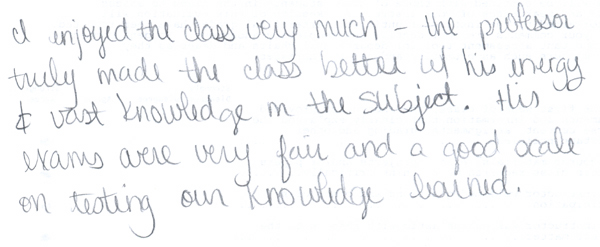 I enjoyed the class very much – the professor
truly made the class better w/ his energy
& vast knowledge in the subject. His
exams were very fair and a good scale
on testing our knowledge learned.